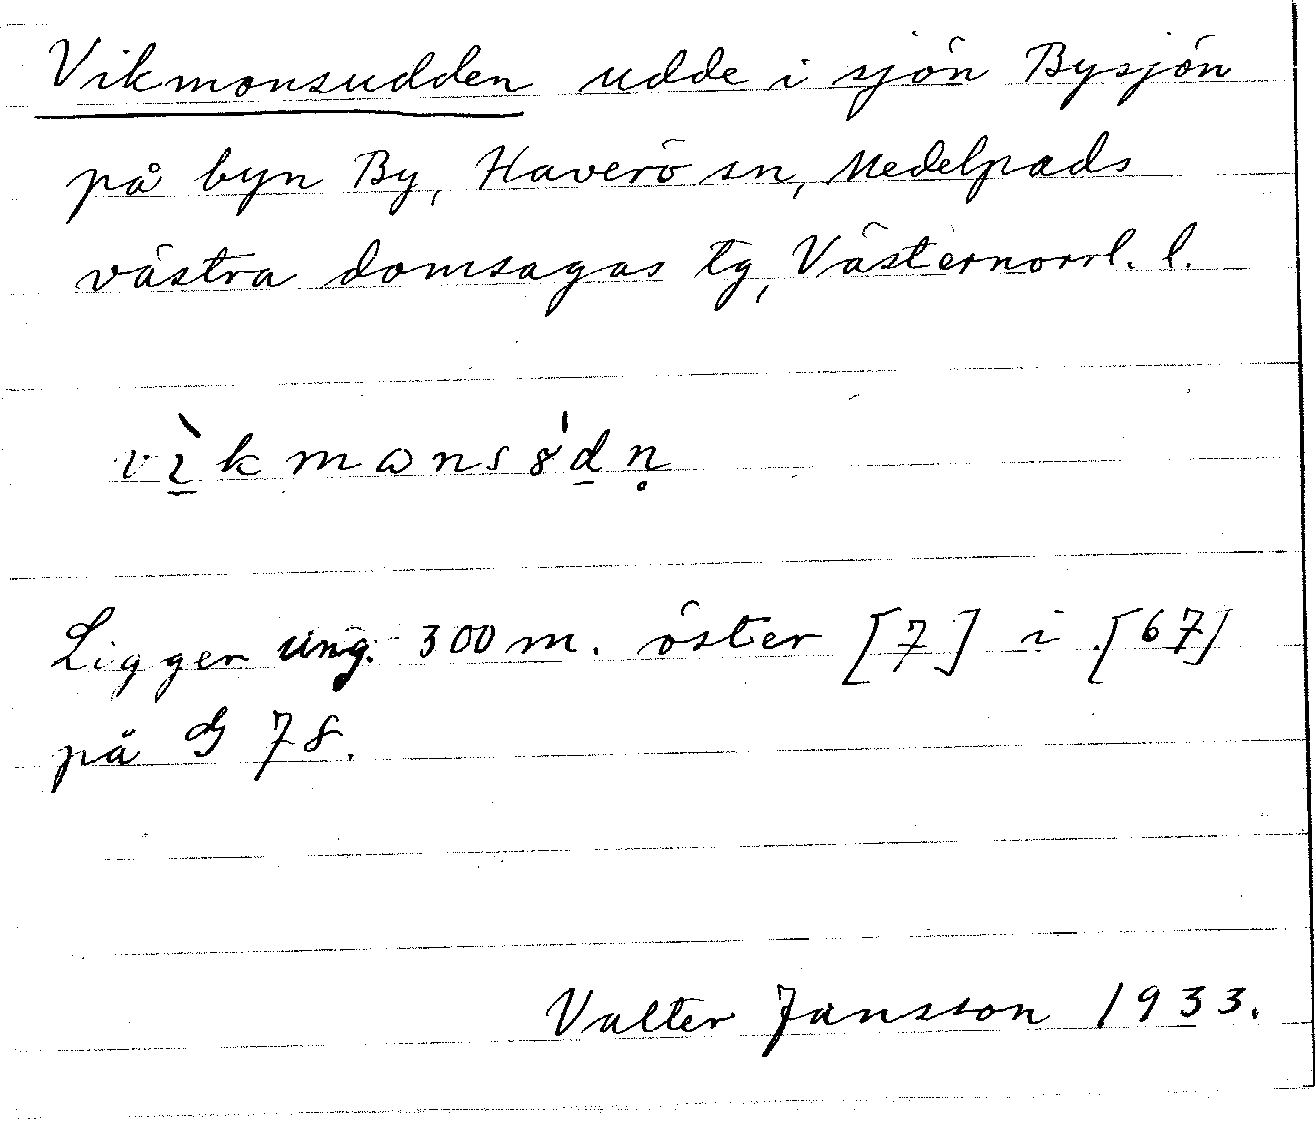 Vikmonsudden udde i sjön Bysjön
på byn By, Haverö sn, Medelpads
västra domsagas tg, Västernorrl. l.
Ligger ung. 300 m. öster [7] i [67]
på G 78.
Valter Jansson 1933.